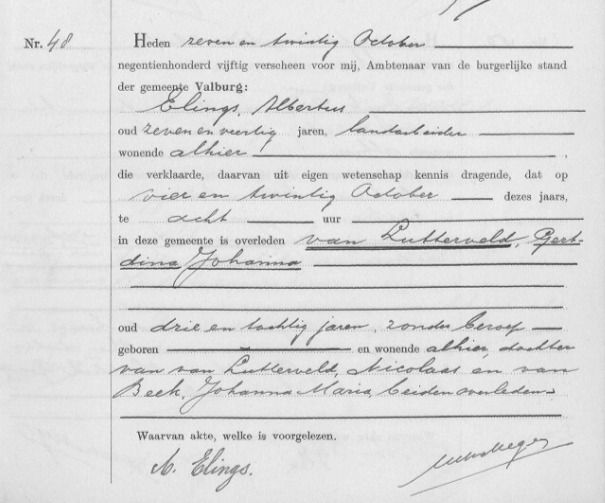 Nr. 48
Heden zeven en twintig October
negentienhonderd vijftig verscheen voor mij, Ambtenaar van de burgerlijke stand
der gemeente Valburg:
Elings, Albertus
oud zeven en veertig jaren, landarbeider
wonende alhier
die verklaarde, daarvan uit eigen wetenschap kennis dragende, dat op
vier en twintig October dezes jaars,
te acht uur
in deze gemeente is overleden van Lutterveld, Gert-
dina Johanna
oud drie en tachtig jaren, zonder beroep
geboren en wonende alhier, dochter
van van Lutterveld, Nicolaas en van
Beek, Johanna Maria, beiden overleden.
Waarvan akte, welke is voorgelezen.
A. Elings.